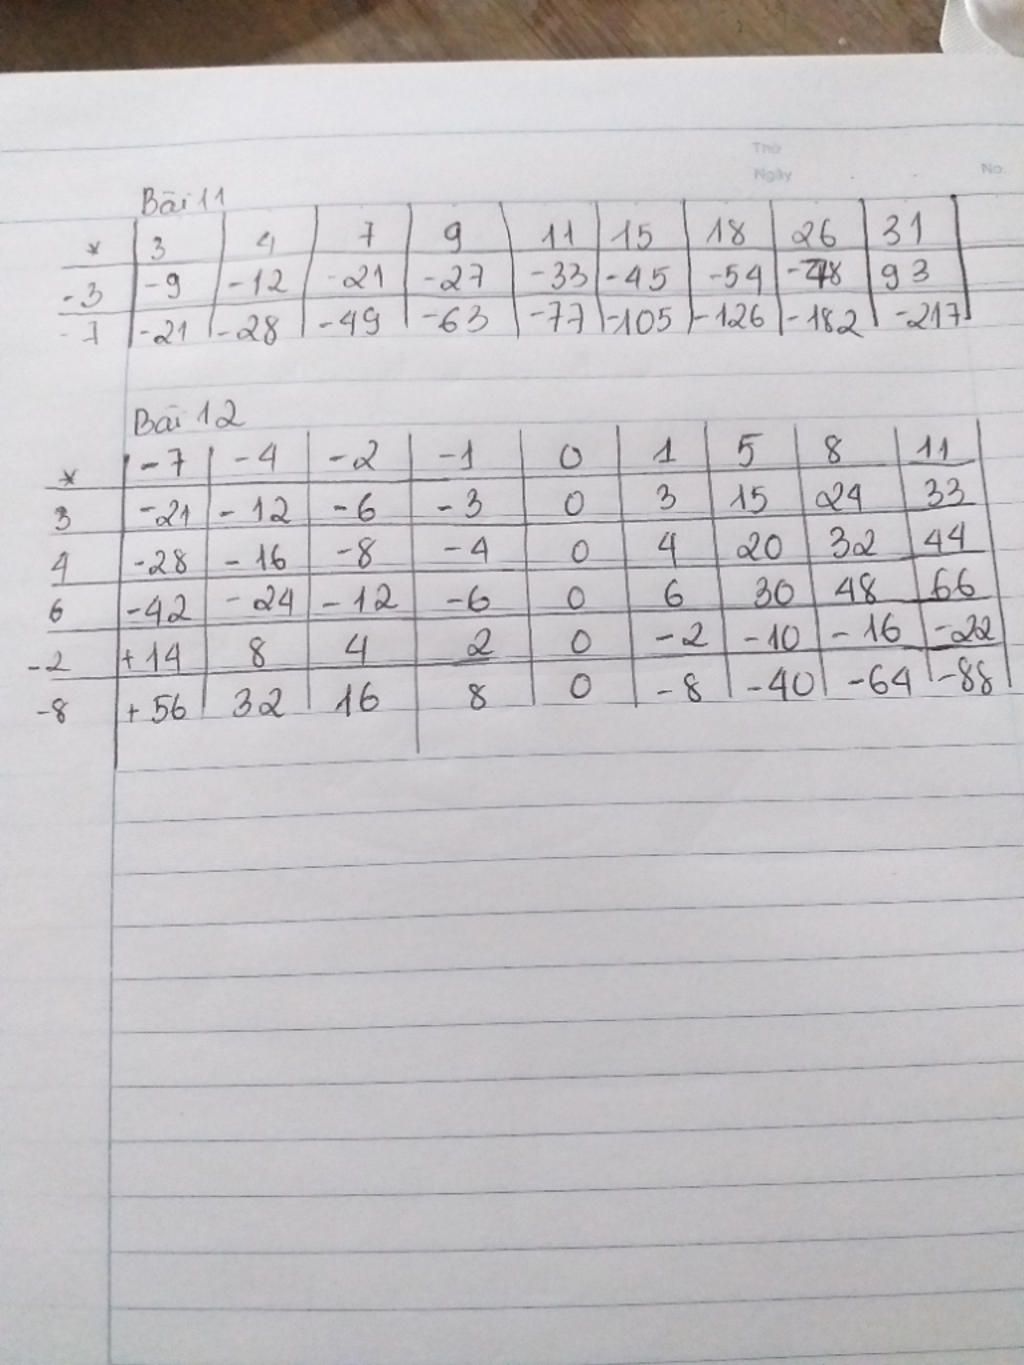 Thứ
Ngày
No.
Bài 11
* 3 4 7 9 11 15 18 26 31
-3 -9 -12 -21 -27 -33 -45 -54 -78 93
-7 -21 -28 -49 -63 -77 -105 -126 -182 -217
Bài 12
* -7 -4 -2 -1 0 1 5 8 11
3 -21 -12 -6 -3 0 3 15 24 33
4 -28 -16 -8 -4 0 4 20 32 44
6 -42 -24 -12 -6 0 6 30 48 66
-2 +14 8 4 2 0 -2 -10 -16 -22
-8 +56 32 16 8 0 -8 -40 -64 -88